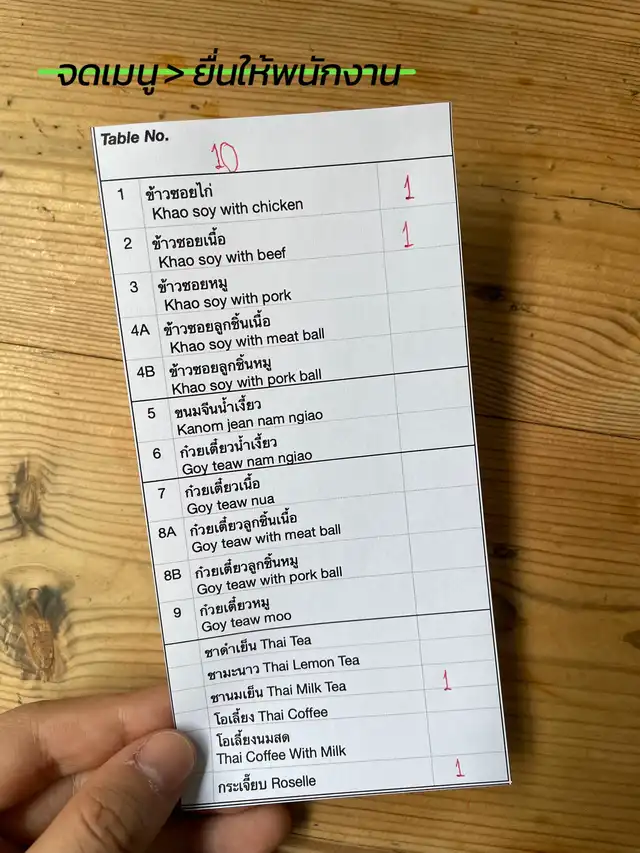 จดเมนู > ยื่นให้พนักงาน
Table No.
10
1 ข้าวซอยไก่ 1
Khao soy with chicken
2 ข้าวซอยเนื้อ 1
Khao soy with beef
3 ข้าวซอยหมู
Khao soy with pork
4A ข้าวซอยลูกชิ้นเนื้อ
Khao soy with meat ball
4B ข้าวซอยลูกชิ้นหมู
Khao soy with pork ball
5 ขนมจีนน้ำเงี้ยว
Kanom jean nam ngiao
6 ก๋วยเตี๋ยวน้ำเงี้ยว
Goy teaw nam ngiao
7 ก๋วยเตี๋ยวเนื้อ
Goy teaw nua
8A ก๋วยเตี๋ยวลูกชิ้นเนื้อ
Goy teaw with meat ball
8B ก๋วยเตี๋ยวลูกชิ้นหมู
Goy teaw with pork ball
9 ก๋วยเตี๋ยวหมู
Goy teaw moo
ชาดำเย็น Thai Tea
ชามะนาว Thai Lemon Tea
ชานมเย็น Thai Milk Tea 1
โอเลี้ยง Thai Coffee
โอเลี้ยงนมสด
Thai Coffee With Milk
กระเจี๊ยบ Roselle 1